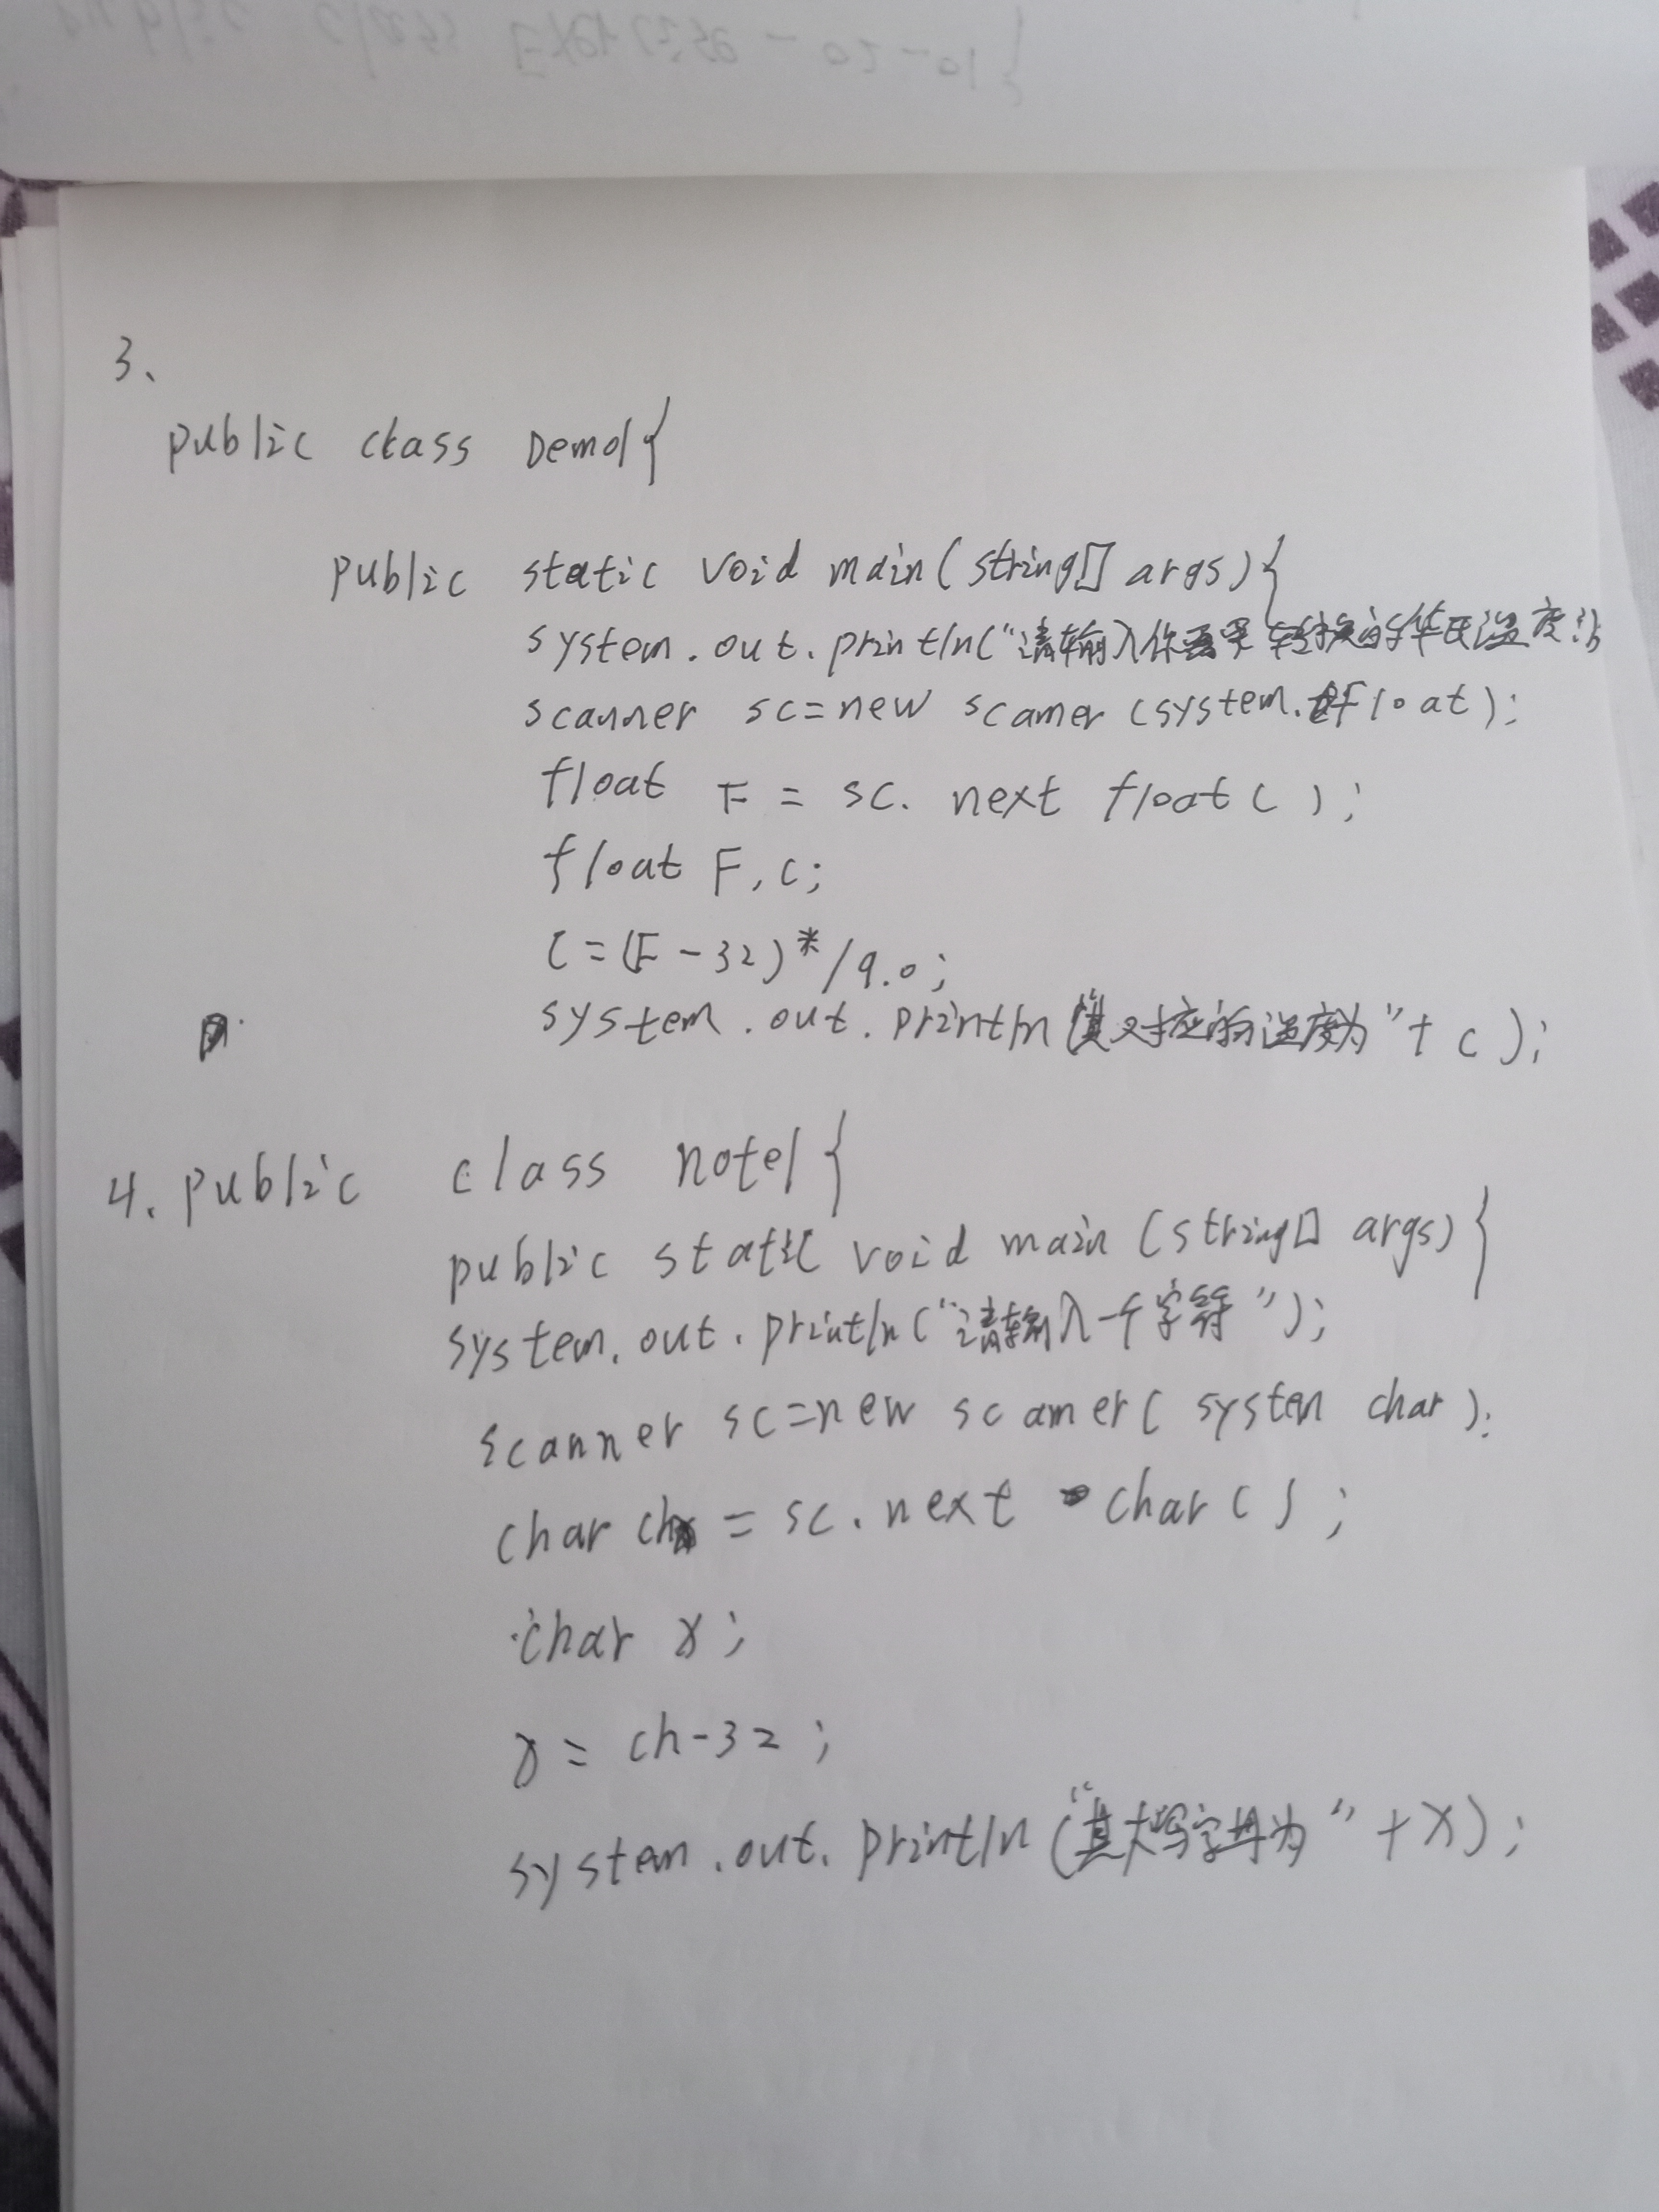 public class Exercise-02-01{
3、
public class Demo1{
public static void main(string[] args){
system.out.println("请输入你要 转换的华氏温度:
scanner sc=new scanner(system.float);
float F = sc. next float( );
float F,c;
C=(F-32)*/9.0;
system.out.println("其对应的温度为"+c);
4. public class note1{
public static void main(string[] args){
system.out.println("请输入一个字符");
scanner sc=new scanner( system char);
char ch = sc.next char();
char x;
x= ch-32;
system.out.println("其大写字母为"+x);